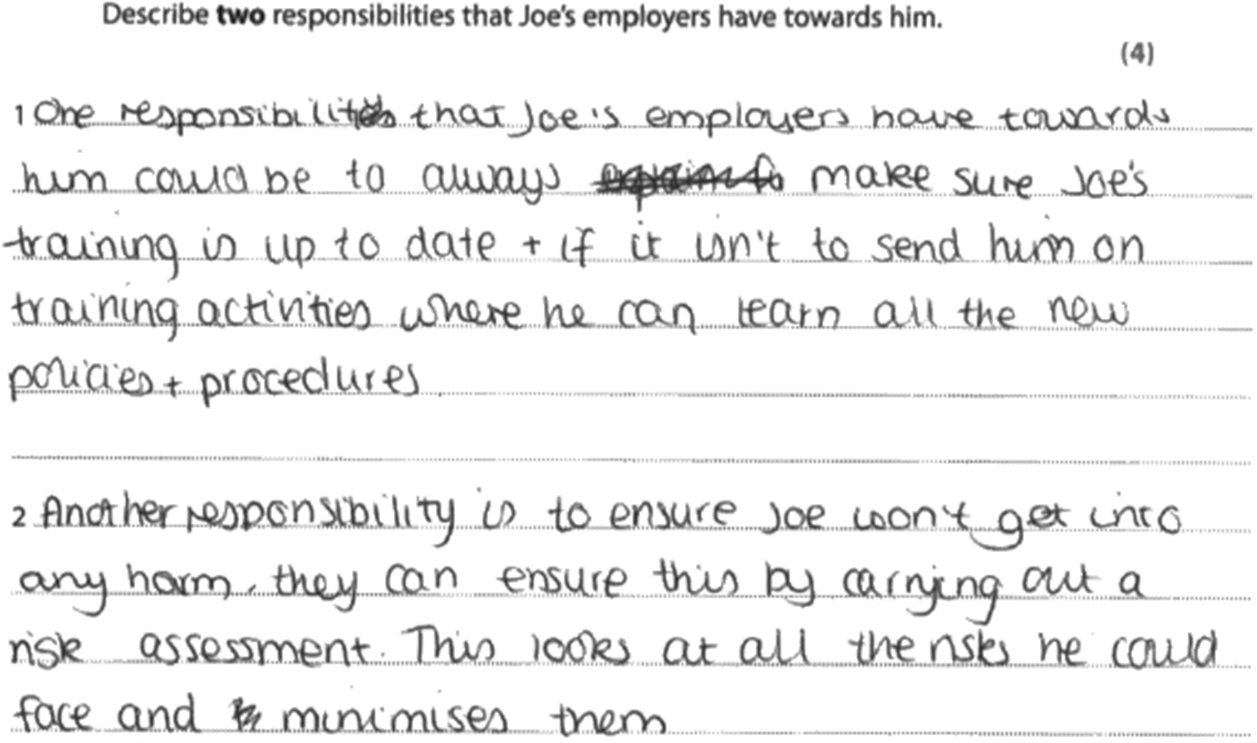 Describe two responsibilities that Joe's employers have towards him.
(4)
1 One responsibility that Joe's employers have towards
him could be to always make sure Joe's
training is up to date + if it isn't to send him on
training activities where he can learn all the new
policies + procedures
2 Another responsibility is to ensure Joe won't get into
any harm, they can ensure this by carrying out a
risk assessment. This looks at all the risks he could
face and minimises them